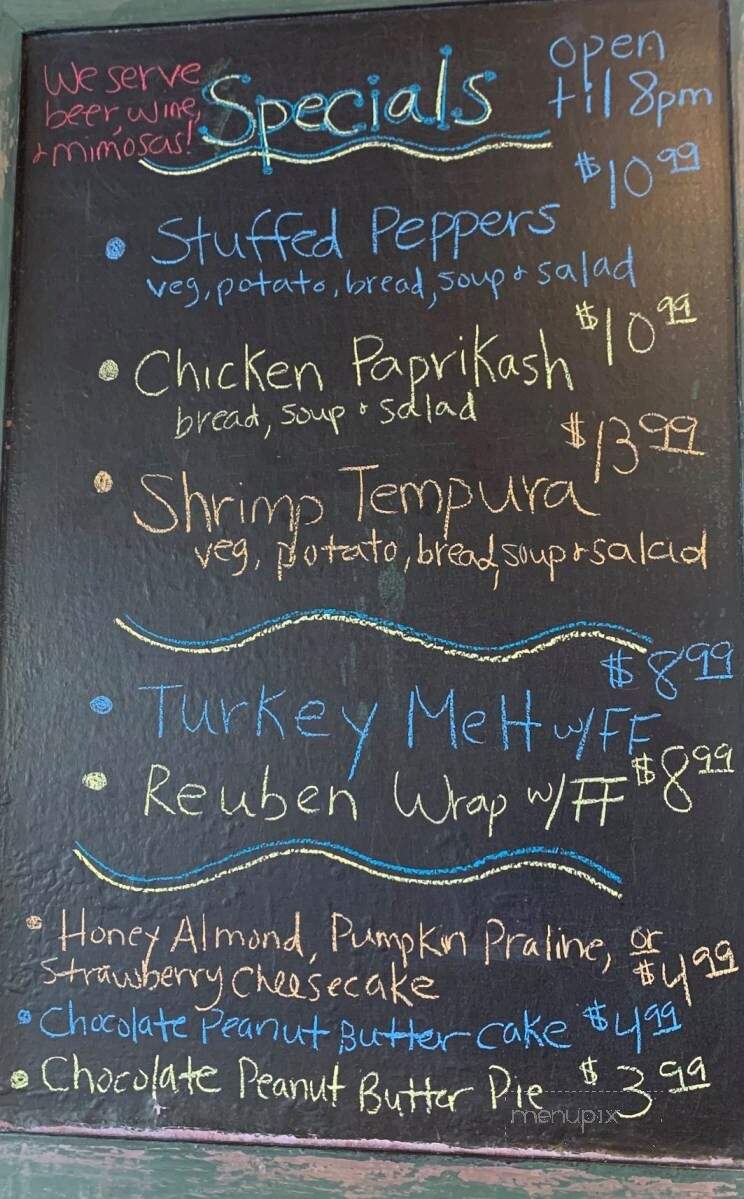 We serve
beer, wine,
+ mimosas!
Specials
open
til 8pm
$10.99
• Stuffed Peppers
veg, potato, bread, soup + salad
• Chicken Paprikash $10.99
bread, soup + salad
$13.99
• Shrimp Tempura
veg, potato, bread, soup + salad
$8.99
• Turkey Melt w/FF
• Reuben Wrap w/FF $8.99
• Honey Almond, Pumpkin Praline, or
Strawberry Cheesecake $4.99
• Chocolate Peanut Butter cake $4.99
• Chocolate Peanut Butter Pie $3.99
menupix